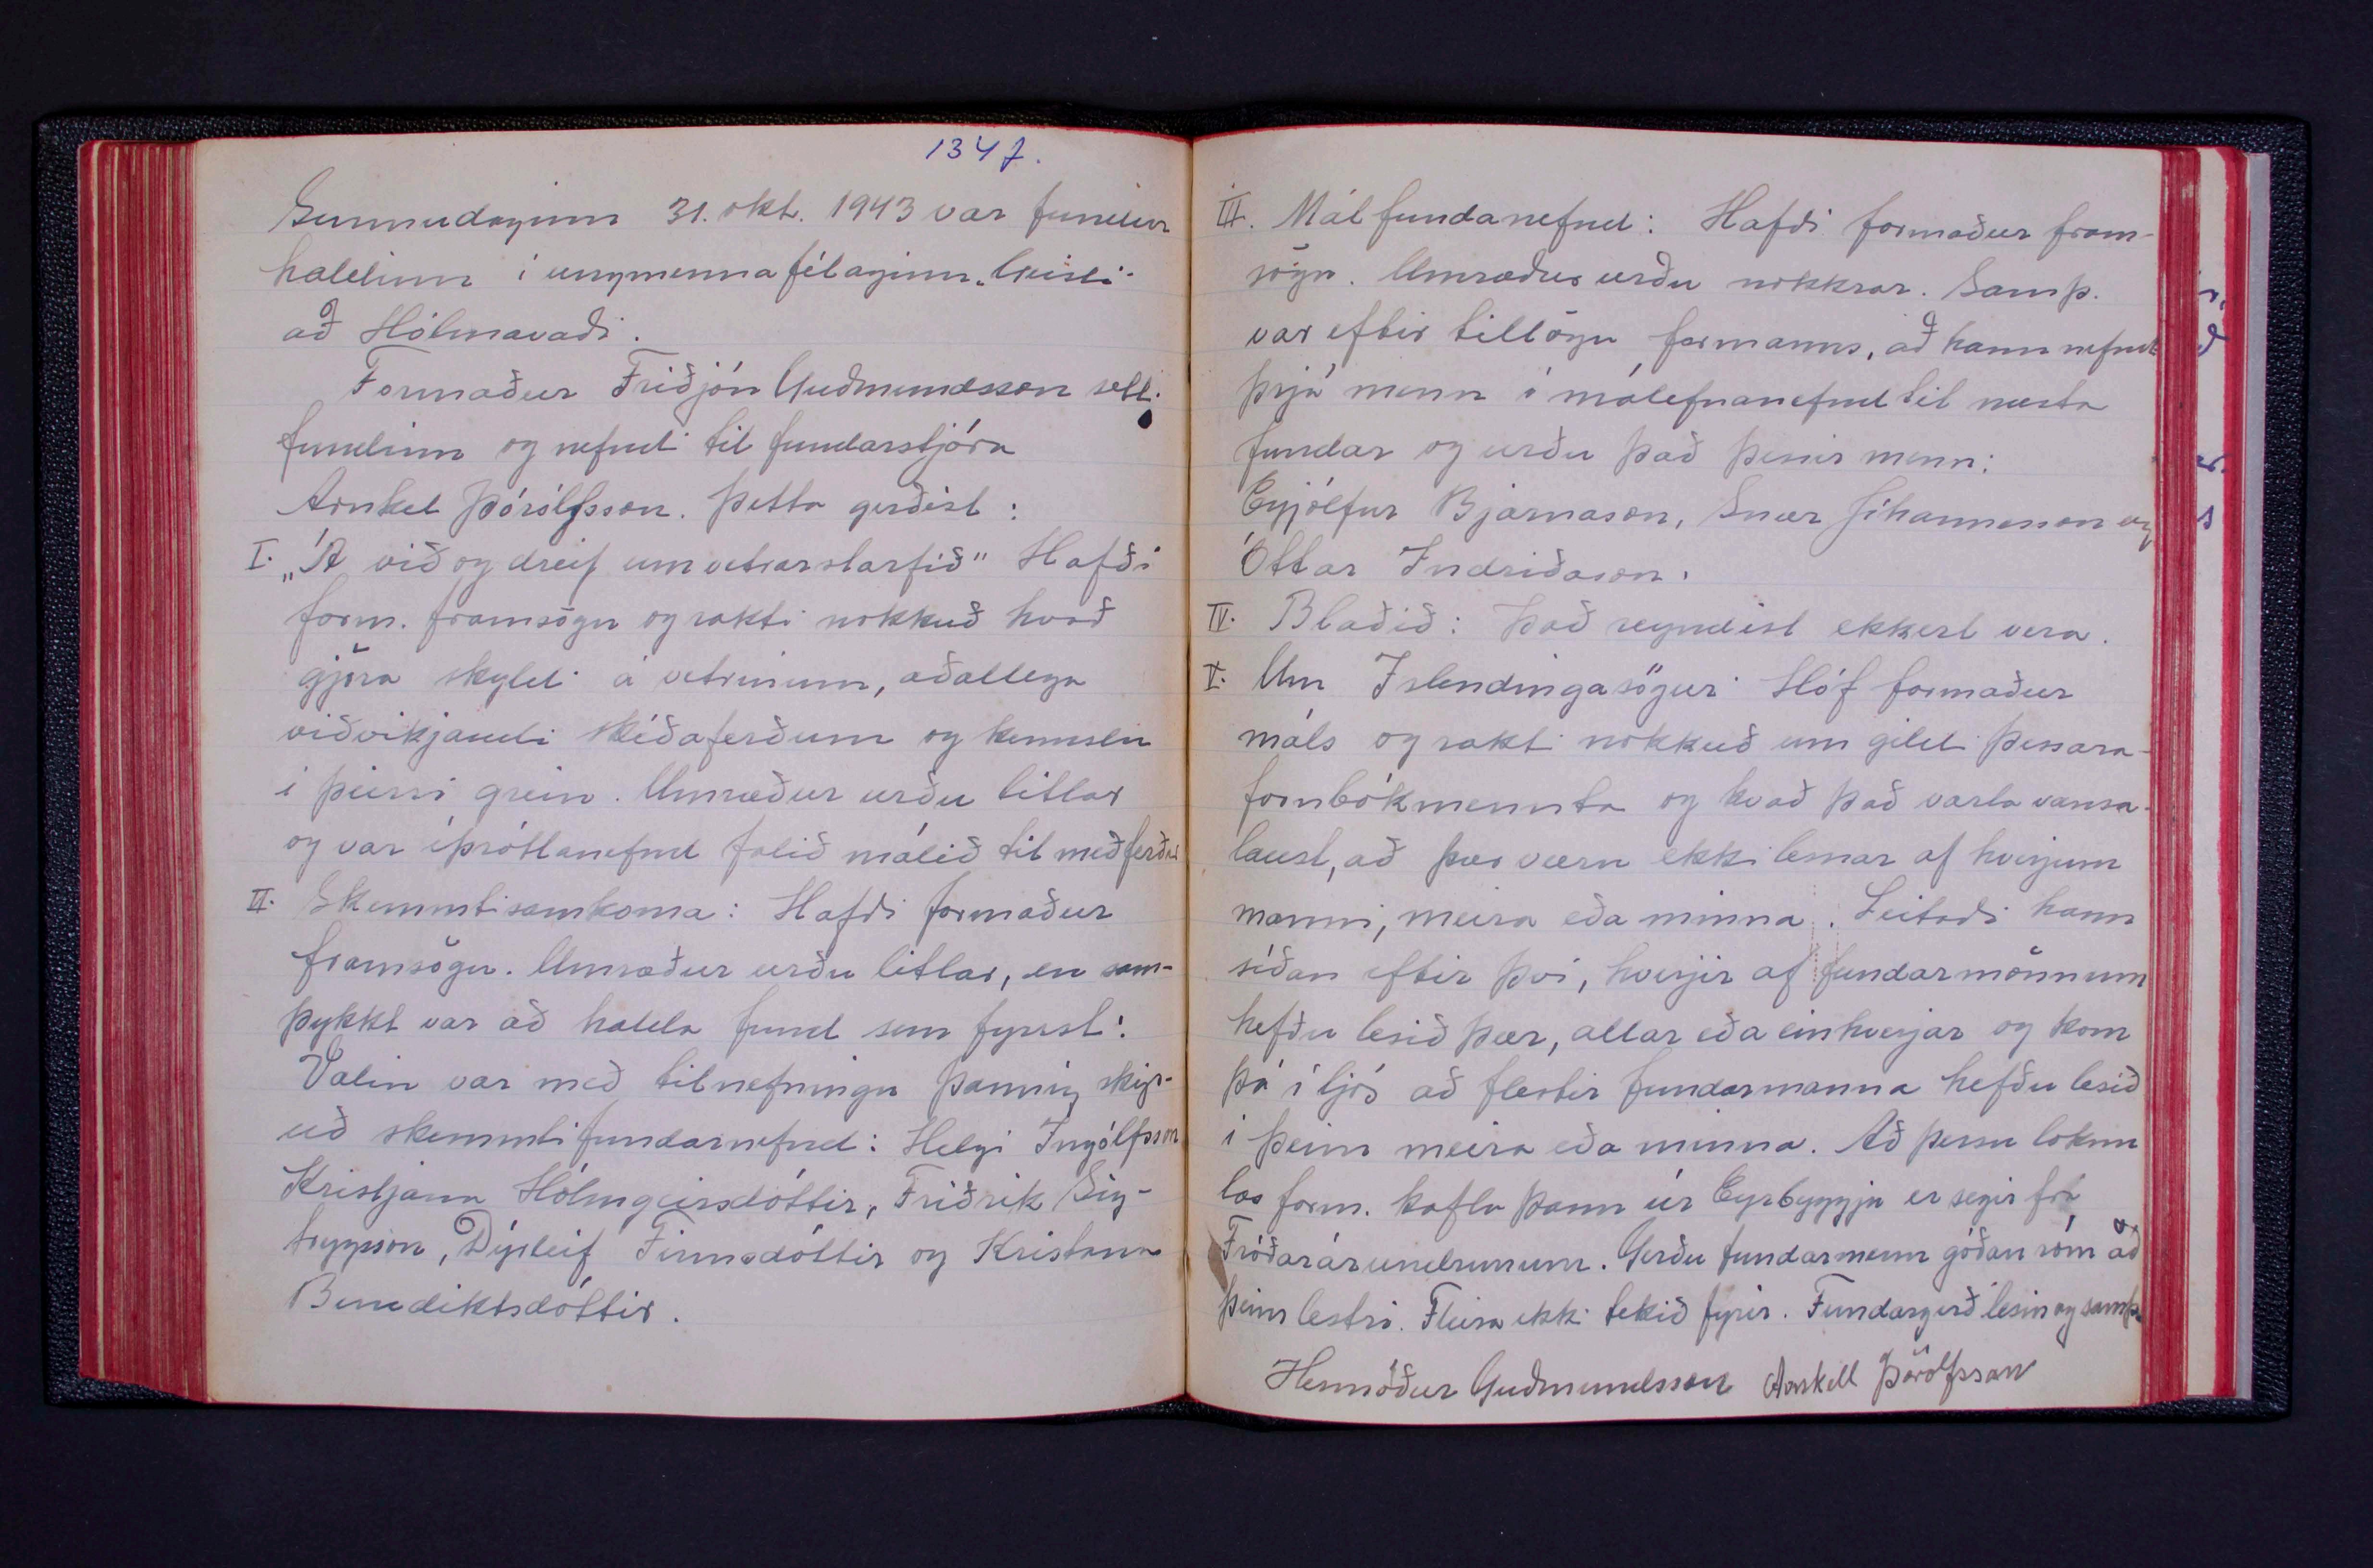 134 f.
Sunnudaginn 31. okt. 1943 var fundur
haldinn í ungmennafélaginu „Geisli"
að Hólmavaði.
Formaður Friðjón Guðmundsson setti
fundinn og nefndi til fundarstjóra
Arnkel Þórólfsson. Þetta gerðist:
I. „Á við og dreif um vetrarstarfið" Hafði
form. framsögu og rakti nokkuð hvað
gjöra skyldi á vetrinum, aðallega
viðvikjandi skíðaferðum og kennslu
í þeirri grein. Umræður urðu litlar
og var íþróttanefnd falið málið til meðferðar
II. Skemmtisamkoma: Hafði formaður
framsögu. Umræður urðu litlar, en sam-
þykkt var að halda fund sem fyrst.
Valin var með tilnefningu þannig skip-
uð skemmtifundarnefnd: Helgi Ingólfsson
Kristjana Hólmgeirsdóttir, Friðrik Sig-
tryggsson, Dýrleif Finnsdóttir og Kristana
Benediktsdóttir.
III. Málfundanefnd: Hafði formaður fram-
sögu. Umræður urðu nokkrar. Samþ.
var eftir tillögu formanns, að hann nefndi
þrjá menn í málefnanefnd til næsta
fundar og urðu það þessir menn:
Eyjólfur Bjarnason, Snær Jóhannesson og
Óttar Indriðason.
IV. Blaðið: Það reyndist ekkert vera.
V. Um Islendingasögur Hóf formaður
máls og rakti nokkuð um gildi þessara
fornbókmennta og kvað það varla vansa-
laust, að þær væru ekki lesnar af hverjum
manni, meira eða minna. Leitaði hann
síðan eftir því, hverjir af fundarmönnum
hefðu lesið þær, allar eða einhverjar og kom
þá í ljós að flestir fundarmanna hefðu lesið
í þeim meira eða minna. Að þessu loknu
las form. kafla þann úr Eyrbyggju er segir frá
Fróðarárundrunum. Gerðu fundarmenn góðan róm að
þeim lestri. Fleira ekki tekið fyrir. Fundargerð lesin og samþ.
Hermóður Guðmundsson Arnkell Þórólfsson